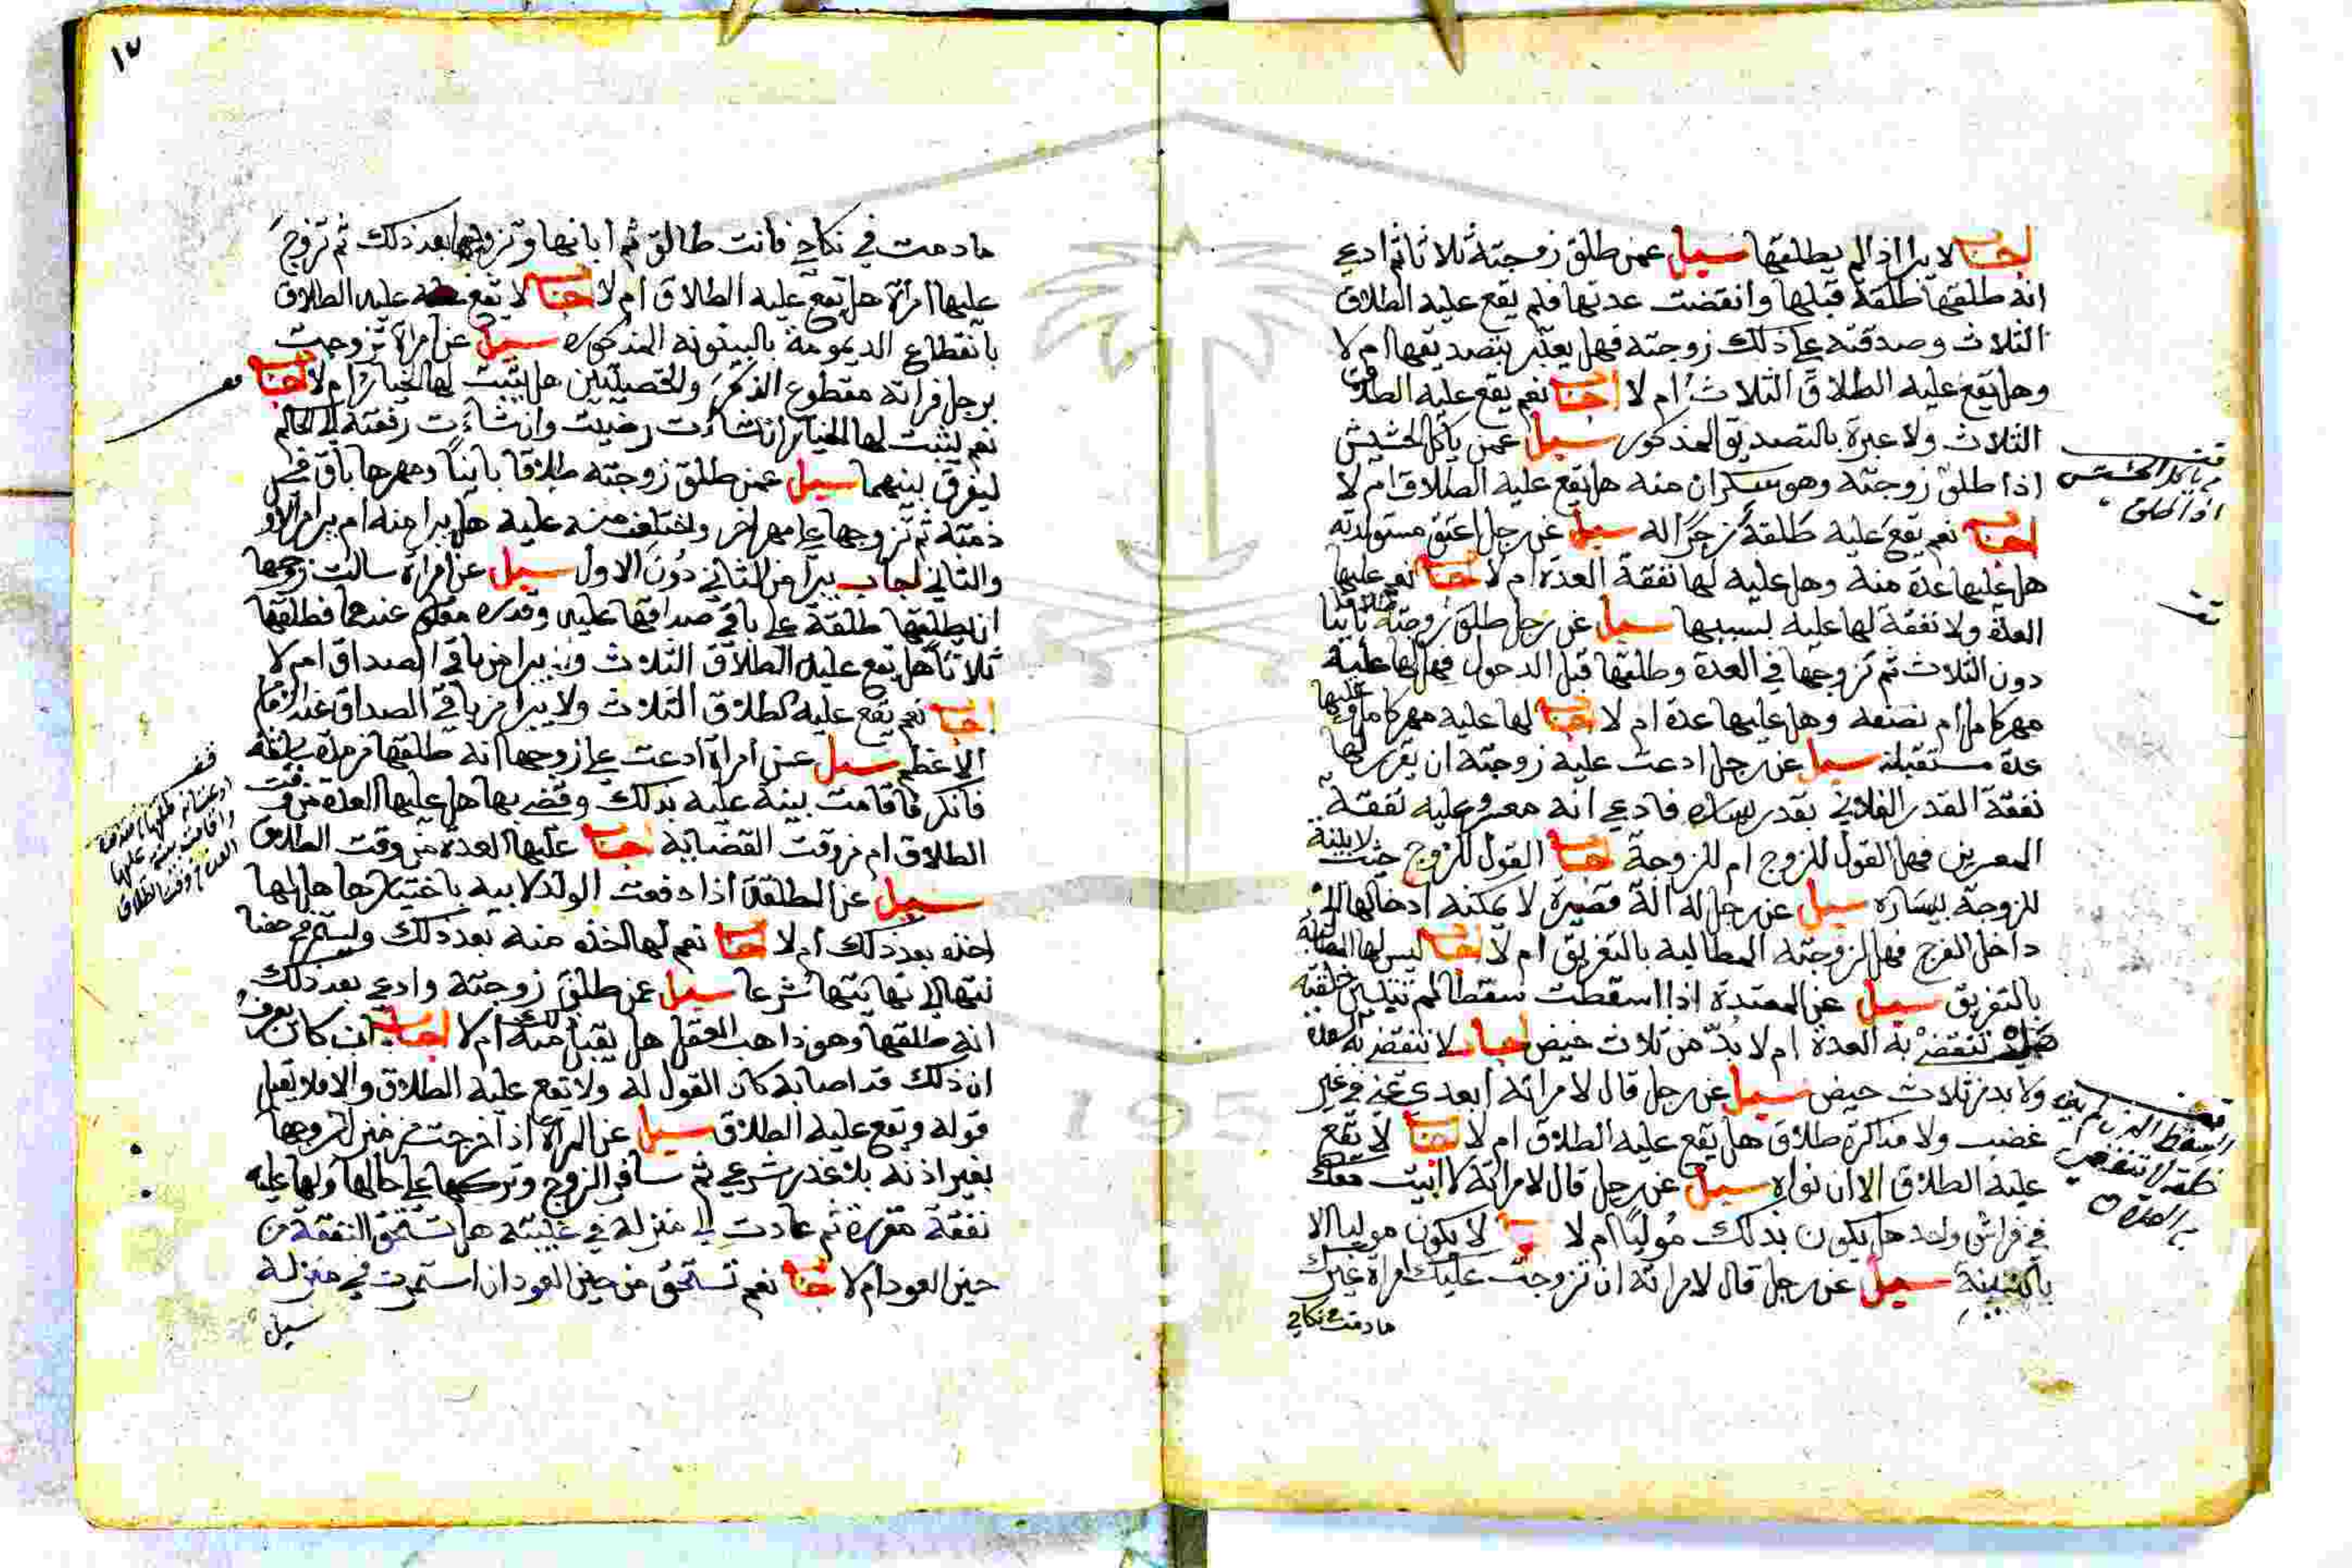 اجاب لا يبرا اذا لم يطلقها سيل عمن طلق زوجته ثلاثا ثم ادعى
انه طلقها طلقة قبلها وانقضت عدتها فلم يقع عليه الطلاق
الثلاث وصدقته على ذلك زوجته فهل يعتبر بتصديقها ام لا
وهل يقع عليه الطلاق الثلاث ام لا اجاب نعم يقع عليه الطلاق
الثلاث ولا عبرة بالتصديق المذكور سيل عمن ياكل الحشيش
اذا طلق زوجته وهو سكران منه هل يقع عليه الطلاق ام لا
اجاب نعم يقع عليه طلقة زجرا له سيل عن رجل اعتق مستولدته
هل عليها عدة منه وهل عليه لها نفقة العدة ام لا اجاب نعم عليها
العدة ولا نفقة لها عليه بسببها سيل عن رجل طلق زوجته طلاقا باينا
دون الثلاث ثم تزوجها في العدة وطلقها قبل الدخول فهل لها عليه
مهر كامل ام نصفه وهل عليها عدة ام لا اجاب لها عليه مهر كامل وعليها
عدة مستقبلة سيل عن رجل ادعت عليه زوجته ان يقرر لها
نفقة القدر الفلاني بقدر يساره فادعى انه معسر وعليه نفقة
المعسرين فهل القول للزوج ام للزوجة اجاب القول للزوج حيث لا بينة
للزوجة بيساره سيل عن رجل له الة قصيرة لا يمكنه ادخالها
داخل الفرج فهل لزوجته المطالبة بالتفريق ام لا اجاب ليس لها المطالبة
بالتفريق سيل عن المعتدة اذا اسقطت سقطا لم تتبين خلقته
هل تنقضي به العدة ام لا بد من ثلاث حيض اجاب لا تنقضي به العدة
ولا بد من ثلاث حيض سيل عن رجل قال لامراته ابعدي عني في غير
غضب ولا مذاكرة طلاق هل يقع عليه الطلاق ام لا اجاب لا يقع
عليه الطلاق الا ان نواه سيل عن رجل قال لامراته لا ابيت معك
في فراش واحد هل يكون بذلك موليا ام لا لا يكون موليا الا
بالنية سيل عن رجل قال لامراته ان تزوجت عليك امراة غيرك
ما دمت في نكاحي
من ياكل الحشيش
اذا طلق
السقط الذي لم يتبين
خلقه لا تنقضي
به العدة
١٧
ما دمت في نكاحي فانت طالق ثم ابانها وتزوجها بعد ذلك ثم تزوج
عليها امراة هل يقع عليه الطلاق ام لا اجاب لا يقع عليه الطلاق
بانقطاع الديمومة بالبينونة المذكورة سيل عن امراة تزوجت
برجل فراته مقطوع الذكر والخصيتين هل يثبت لها الخيار ام لا اجاب
نعم يثبت لها الخيار ان شاءت رضيت وان شاءت رفعته الى الحاكم
ليفرق بينهما سيل عمن طلق زوجته طلاقا باينا ومهرها باق في
ذمته ثم تزوجها على مهر اخر واختلعت منه عليه هل يبرا منه ام يبرا من الاول
والثاني اجاب يبرا من الثاني دون الاول سيل عن امراة سالت زوجها
ان يطلقها طلقة على باقي صداقها عليه وقدره معلوم عندهما فطلقها
ثلاثا هل يقع عليه الطلاق الثلاث ويبرا من باقي الصداق ام لا
اجاب نعم يقع عليه الطلاق الثلاث ولا يبرا من باقي الصداق عند الامام
الاعظم سيل عن امراة ادعت على زوجها انه طلقها من مدة
فانكر فاقامت بينة عليه بذلك وقضي بها هل عليها العدة من وقت
الطلاق ام من وقت القضاء به اجاب عليها العدة من وقت الطلاق
سيل عن المطلقة اذا دفعت الولد لابيه باختيارها هل لها
اخذه بعد ذلك ام لا اجاب نعم لها اخذه منه بعد ذلك ويستمر في حضا
نتها الى نهايتها شرعا سيل عمن طلق زوجته وادعى بعد ذلك
انه طلقها وهو ذاهب العقل هل يقبل منه ذلك ام لا اجاب ان كان يعرف
ان ذلك قد اصابه كان القول له ولا يقع عليه الطلاق والا فلا يقبل
قوله ويقع عليه الطلاق سيل عن المراة اذا خرجت من منزل زوجها
بغير اذنه بلا عذر شرعي ثم سافر الزوج وتركها على حالها ولها عليه
نفقة مقررة ثم عادت الى منزله في غيبته هل تستحق النفقة من
حين العود ام لا اجاب نعم تستحق من حين العود ان استمرت في منزله
سيل